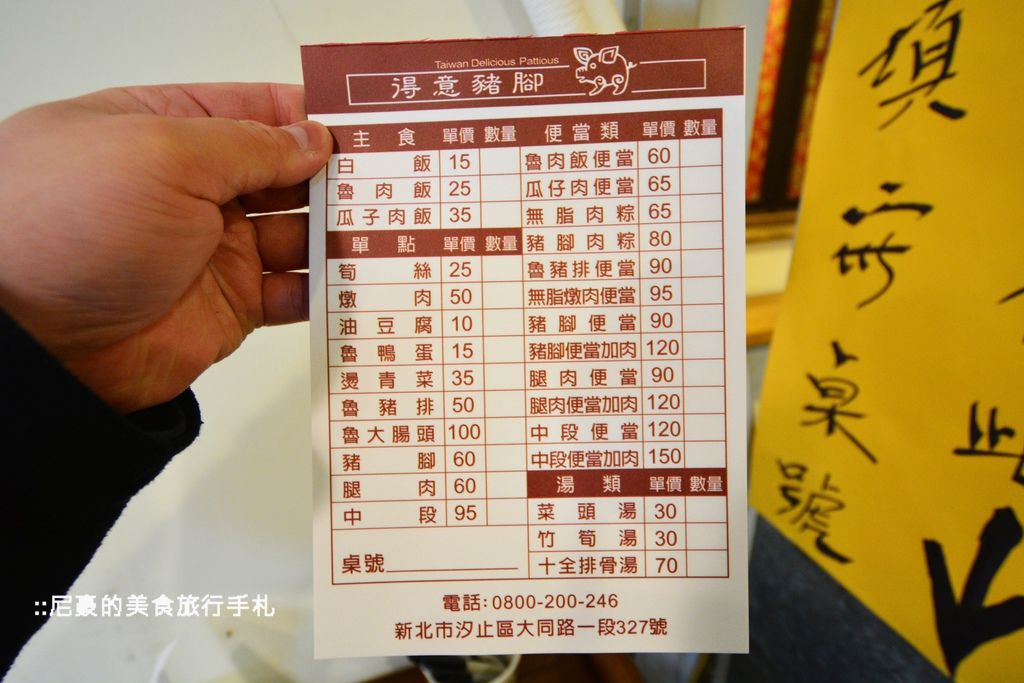 Taiwan Delicious Pattious
得意豬腳
主食 單價 數量
白飯 15
魯肉飯 25
瓜子肉飯 35
單點 單價 數量
筍絲 25
燉肉 50
油豆腐 10
魯鴨蛋 15
燙青菜 35
魯豬排 50
魯大腸頭 100
豬腳 60
腿肉 60
中段 95
桌號
便當類 單價 數量
魯肉飯便當 60
瓜仔肉便當 65
無脂肉粽 65
豬腳肉粽 80
魯豬排便當 90
無脂燉肉便當 95
豬腳便當 90
豬腳便當加肉 120
腿肉便當 90
腿肉便當加肉 120
中段便當 120
中段便當加肉 150
湯類 單價 數量
菜頭湯 30
竹筍湯 30
十全排骨湯 70
電話:0800-200-246
新北市汐止區大同路一段327號
填寫桌號
此
::尼豪的美食旅行手札